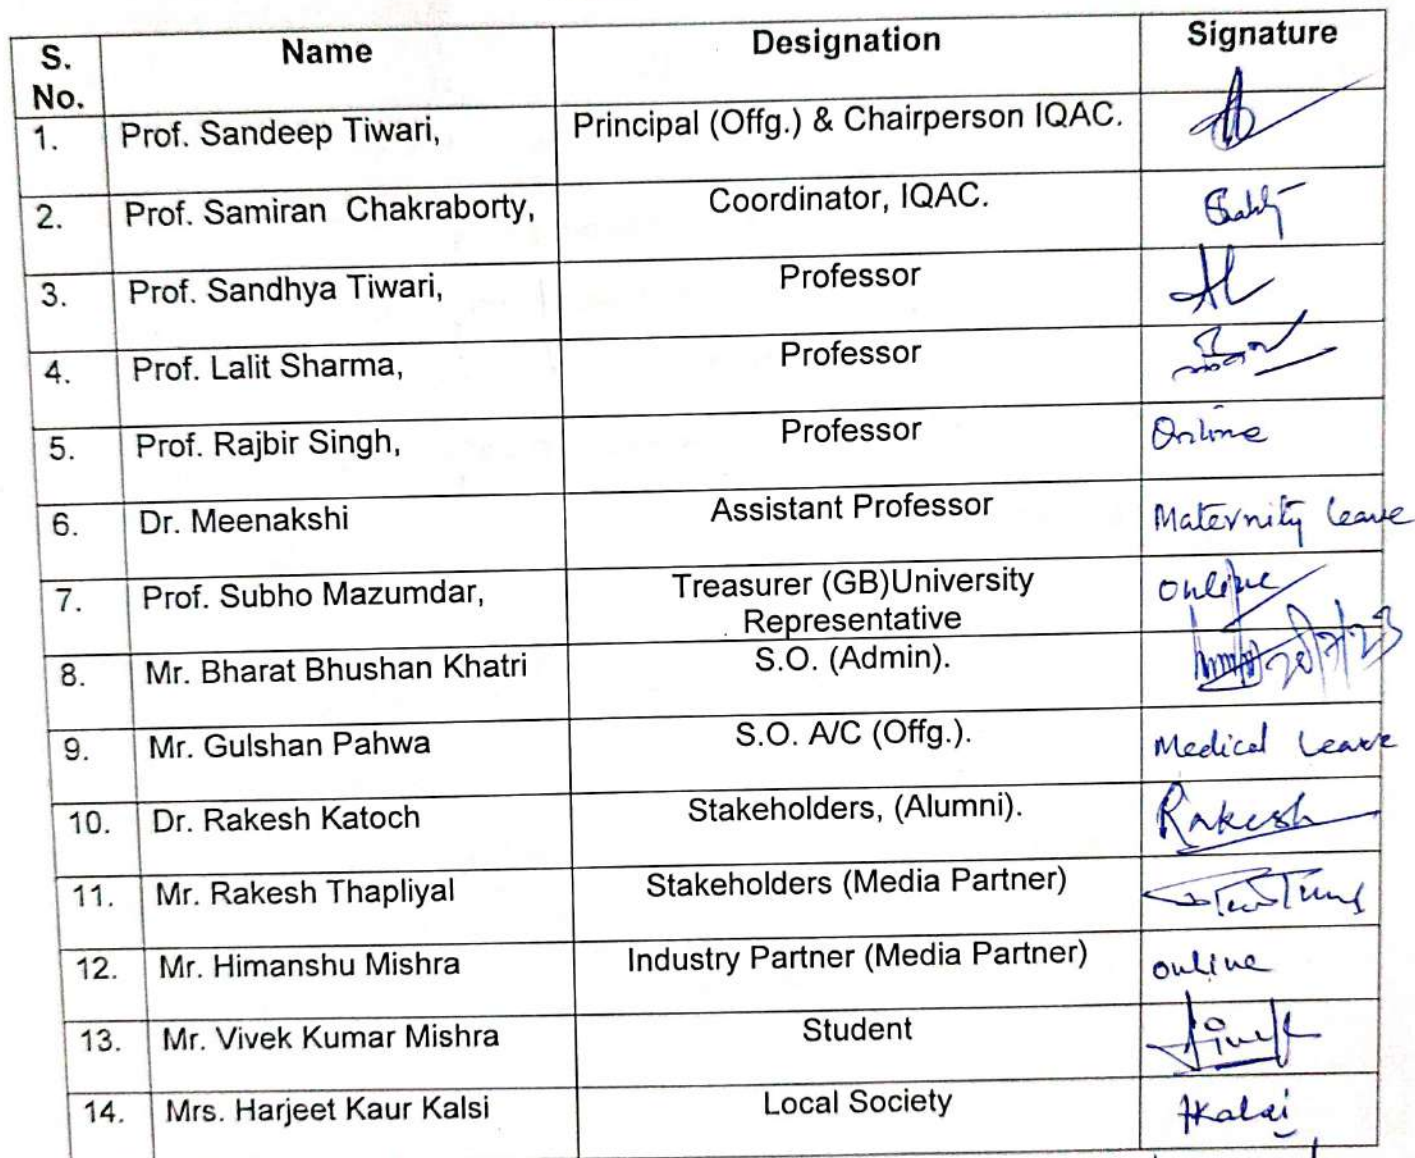 S. No. Name Designation Signature
1. Prof. Sandeep Tiwari, Principal (Offg.) & Chairperson IQAC.
2. Prof. Samiran Chakraborty, Coordinator, IQAC.
3. Prof. Sandhya Tiwari, Professor
4. Prof. Lalit Sharma, Professor
5. Prof. Rajbir Singh, Professor Online
6. Dr. Meenakshi Assistant Professor Maternity leave
7. Prof. Subho Mazumdar, Treasurer (GB)University Online
Representative
8. Mr. Bharat Bhushan Khatri S.O. (Admin).
9. Mr. Gulshan Pahwa S.O. A/C (Offg.). Medical Leave
10. Dr. Rakesh Katoch Stakeholders, (Alumni). Rakesh
11. Mr. Rakesh Thapliyal Stakeholders (Media Partner)
12. Mr. Himanshu Mishra Industry Partner (Media Partner) online
13. Mr. Vivek Kumar Mishra Student
14. Mrs. Harjeet Kaur Kalsi Local Society HKalsi